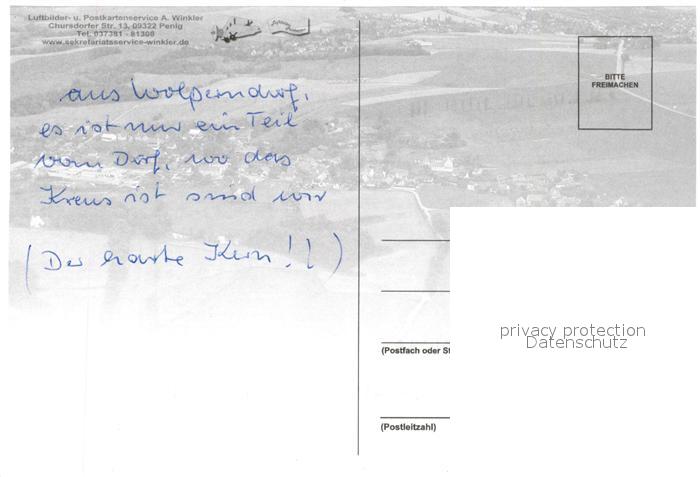 Luftbilder- u. Postkartenservice A. Winkler
Chursdorfer Str. 13, 09322 Penig
Tel. 037381 - 81308
www.sekretariatsservice-winkler.de
BITTE
FREIMACHEN
aus Wolperndorf,
es ist nur ein Teil
vom Dorf, wo das
Kreus ist sind wir
(Der harte Kern!!)
privacy protection
Datenschutz
(Postfach oder St
(Postleitzahl)